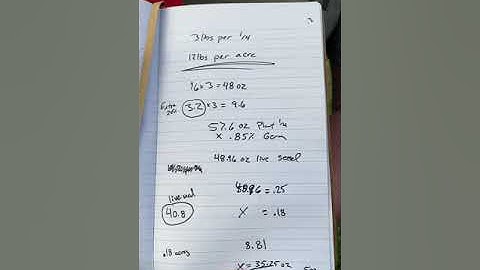 3 lbs per 1/4
12 lbs per acre
16 x 3 = 48 oz
Extra 20% 3.2 x 3 = 9.6
57.6 oz Plant 1/4
x .85% Germ
48.96 oz live seed
live seed
40.8
= .25
X = .18
8.81
.18 acres
X = 35.25 oz